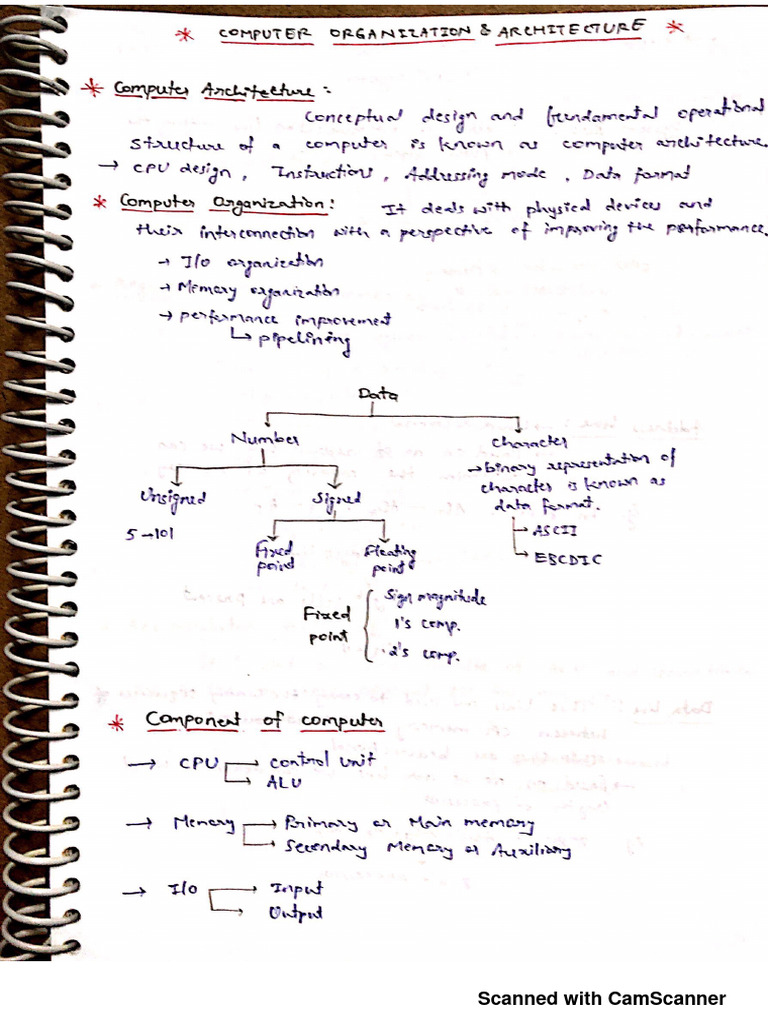 * COMPUTER ORGANIZATION & ARCHITECTURE *
* Computer Architecture :-
Conceptual design and fundamental operational
structure of a computer is known as computer architecture.
→ CPU design, Instructions, Addressing mode, Data format
* Computer Organization: It deals with physical devices and
their interconnection with a perspective of improving the performance.
→ I/o organization
→ Memory organization
→ performance improvement
↳ pipelining
Data
Number Character
→ binary representation of
character is known as
data format.
→ ASCII
→ EBCDIC
Unsigned Signed
5 → 101
Fixed point Floating point
Fixed point { Sign magnitude
1's comp.
2's comp.
* Component of computer
→ CPU → control unit
→ ALU
→ Memory → Primary or Main memory
→ Secondary Memory or Auxiliary
→ I/o → Input
→ Output
Scanned with CamScanner